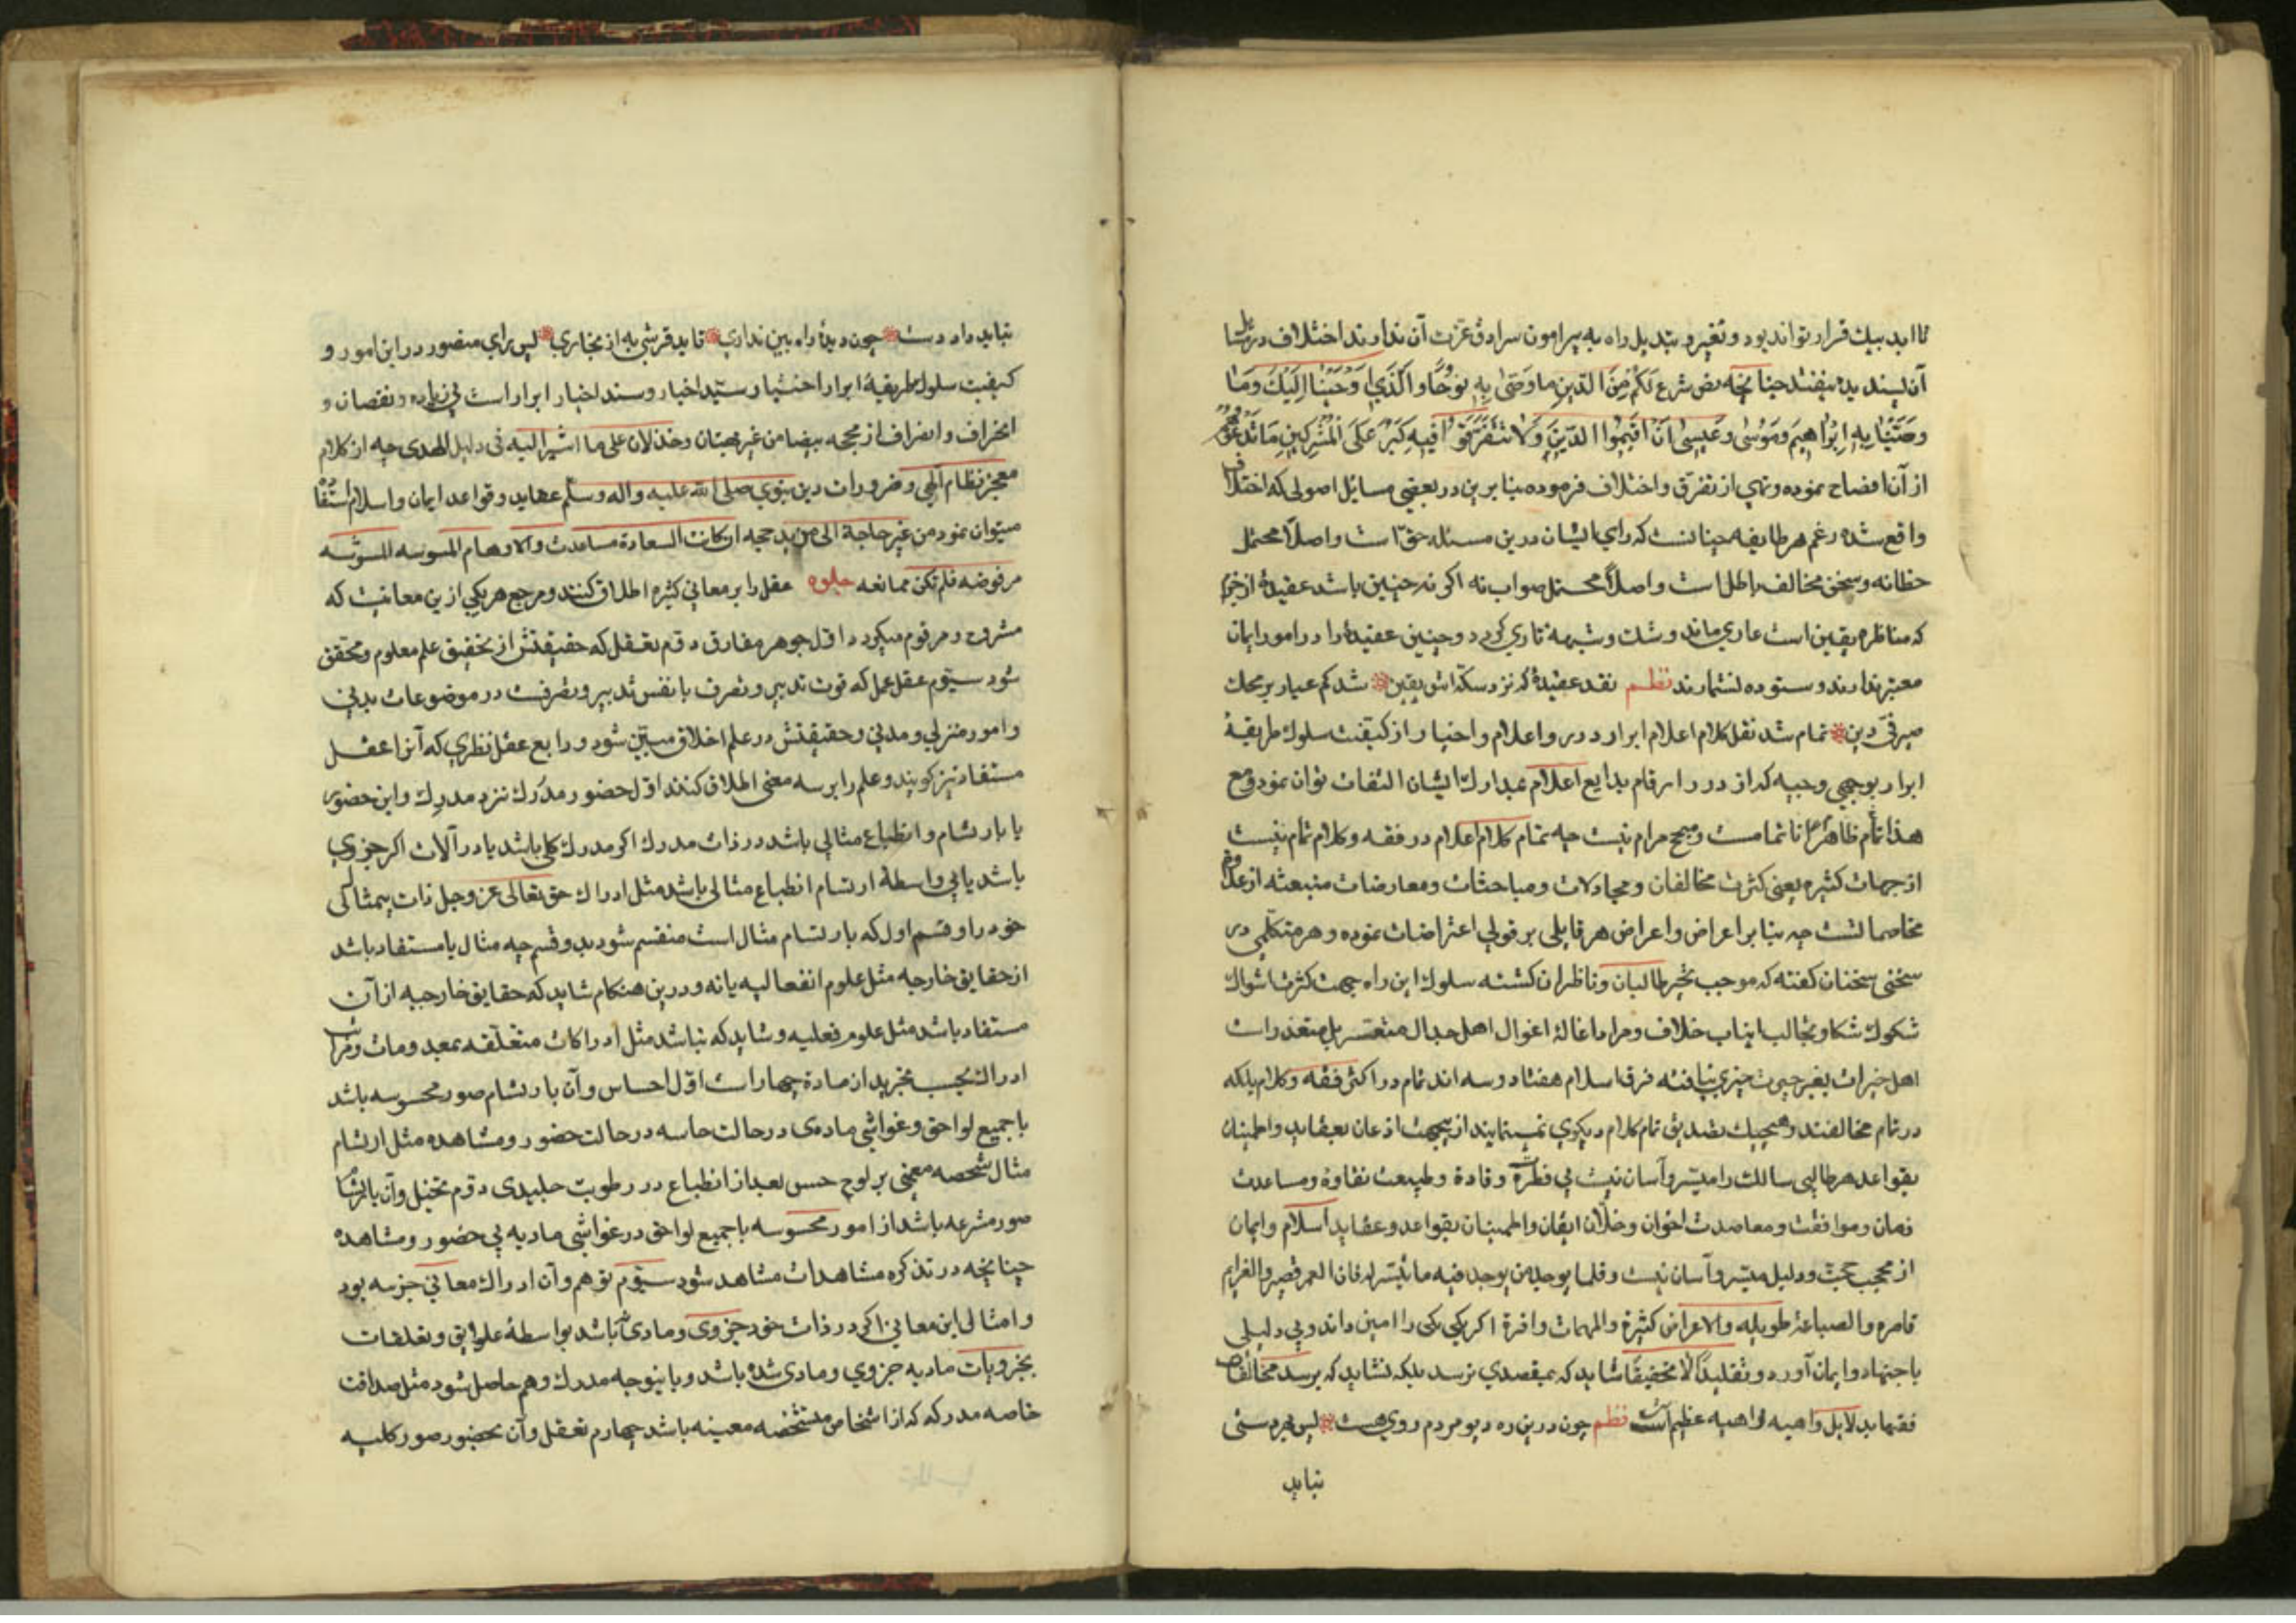 تا ابد بیك قرار تواند بود و تغیر و تبدیل راه به پیرامون سرادق عزت آن ندارند اختلاف در
آن پسندیده نیفتد چنانچه نص شرع لَكُمْ مِنَ الدّينِ ما وَصّیٰ بِهِ نوُحًا وَالَّذي اَوْحَيْنا اِلَيْكَ وَمَا
وَصَّيْنا بِهِ اِبْرٰاهيمَ وَمُوسٰی وَعيسیٰ اَنْ اَقيمُوا الدّينَ وَلاٰ تَتَفَرَّقُوا فيهِ كَبُرَ عَلَی الْمُشْرِكينَ مَا تَدْعُوهُمْ
از آن افصاح نموده و نهی از تفرق و اختلاف فرموده بنا برین در بعضی مسایل اصولی که اختلاف
واقع شده زعم هر طایفه چنانست که رای ایشان درین مسئله حق است و اصلاً محتمل
خطا نه و سخن مخالف باطل است و اصلاً محتمل صواب نه اکر نه چنین باشد عقیدهٔ از
که مناظره یقین است عاری ماند و شك و شبهه تاری کردد و چنین عقیده را در امور ایمان
معتبر ندارند و ستوده نشمارند نظم نقد عقیدهٔ که نزد سکه اش یقین شد کم عیار بر محك
صرفی دین تمام شد نقل کلام اعلام ابرار در رد و اعلام و اخبار از کیفیت سلوك طریقهٔ
ابرار بوجهی وجیه که از درر ارقام بدایع اعلام بمدارك ایشان التقات توان نمود و مع
هذا تام ظاهراً ناتمامست و مبحح مرام نیست چه تمام کلام اعلام در فقه و کلام تمام نیست
از جهات کثیره یعنی کثرت مخالفان و مجادلات و مباحثات و معارضات منبعثه از
مخاصماتست چه بنابر اعراض و اعراض هر قایلی بر قولی اعتراضات نموده و هر متکلمی در
سخنی سخنان کفته که موجب تحیر طالبان و ناظران کشته سلوك این راه جهت کثرت اشواك
شکوك شکا و مخالب انیاب خلاف و مرا و اغالهٔ اغوال اهل جدال متعسر بل متعذر است
اهل خیرات بغیر حیرت چیزی نیافته فرق اسلام هفتاد و سه اند تمام در اکثر فقه و کلام بلکه
در تمام مخالفند و هیچیك تصدیق تمام کلام دیکری نمینمایند ازینجهت اذعان بعقاید و اطمینان
بقواعد هر طالبی سالك را میسر و آسان نیست بی فطرة وقادة و طبیعت نقاوة و مساعدت
زمان و موافقت و معاضدت اخوان و خلان ایقان و اطمینان بقواعد و عقاید اسلام و ایمان
از حجت و دلیل میسر و آسان نیست و قلما یوجد من یوجد فیه ما یتیسر له فان العمر قصیر و الغرایم
قاصره و الصناعة طویله و الاعراض کثیرة و المهمات وافرة اکر یکی یکی را امین داند و بی دلیلی
باجتهاد و ایمان آورد و تقلیداً لا تحقیقاً شاید که بمقصدی نرسد بلکه نشاید که برسد
فقها بدلایل واهیه لواهیه عظیم است نظم چون درین ره دیو مردم روی هست پس بهر دستی
نباید
نباید داد دست چون دیدهٔ راه بین نداری قاید قرشی به از بخاری پس برای متصور در این امور و
کیفیت سلوك طریقهٔ ابرار اختیار سید اخیار و سند اخیار ابرار است بی زیاده و نقصان و
انحراف و انصراف از محجه بیضا من غیر بهتان و خذلان علی ما اشیر الیه فی دلیل الهدی چه از کلام
معجز نظام آلهی و ضرورات دین نبوی صلی الله علیه و اله وسلم عقاید و قواعد ایمان و اسلام
میتوان نمود من غیر حاجة الی من ید حجیه ان کانت السعادة مساعدت و الاوهام
مرفوضه فلم تکن ممانعه جلوه عقل را بر معانی کثیره اطلاق کنند و مرجع هر یکی ازین معانیست که
مشروح و مرقوم میکردد اول جوهر مفارق دوم تعقل که حقیقتش از تحقیق علم معلوم و محقق
شود سیوم عقل عمل که قوت تدبیر و تصرف با نفس تدبیر و تصرفست در موضوعات بدنی
و امور منزلی و مدنی و حقیقتش در علم اخلاق مبین شود و رابع عقل نظری که آنرا عقل
مستفاد نیز کویند و علم را بر سه معنی اطلاق کنند اول حضور مدرَك نزد مدرِك و این حضور
یا بارتسام و انطباع مثالی باشد در ذات مدرك اکر مدرك کلی باشد یا در آلات اکر جزوی
باشد یا بی واسطهٔ ارتسام انطباع مثالی باشد مثل ادراك حق تعالی عز و جل ذات بیمثال
خود را و قسم اول که بارتسام مثال است منقسم شود بدو قسم چه مثال یا مستفاد باشد
از حقایق خارجه مثل علوم انفعالیه یا نه و درین هنکام شاید که حقایق خارجیه از آن
مستفاد باشد مثل علوم فعلیه و شاید که نباشد مثل ادراکات متعلقه بمعدومات و مراتب
ادراك بحسب تجرید از مادة چهار است اول احساس و آن بارتسام صور محسوسه باشد
با جمیع لواحق و غواشی مادی در حالت حاسه در حالت حضور و مشاهده مثل ارتسام
مثال شخصه معین بر لوح حس بعد از انطباع در رطوبت جلیدی دوم تخیل و آن بارتسام
صور منتزعه باشد از امور محسوسه با جمیع لواحق در غواشی مادیه بی حضور و مشاهده
چنانچه در تذکره مشاهدات مشاهد شود سیوم توهم و آن ادراك معانی جزییه بود
و امثال این معانی اکر در ذات خود جزوی و مادی نباشد بواسطهٔ علوایق و تعلقات
بجزویات مادیه جزوی و مادی شده باشد و باینوجه مدرك وهم حاصل شود مثل صداقت
خاصه مدرکه که از اشخاص متشخصه معینه باشد چهارم تعقل و آن بحضور صور کلیه